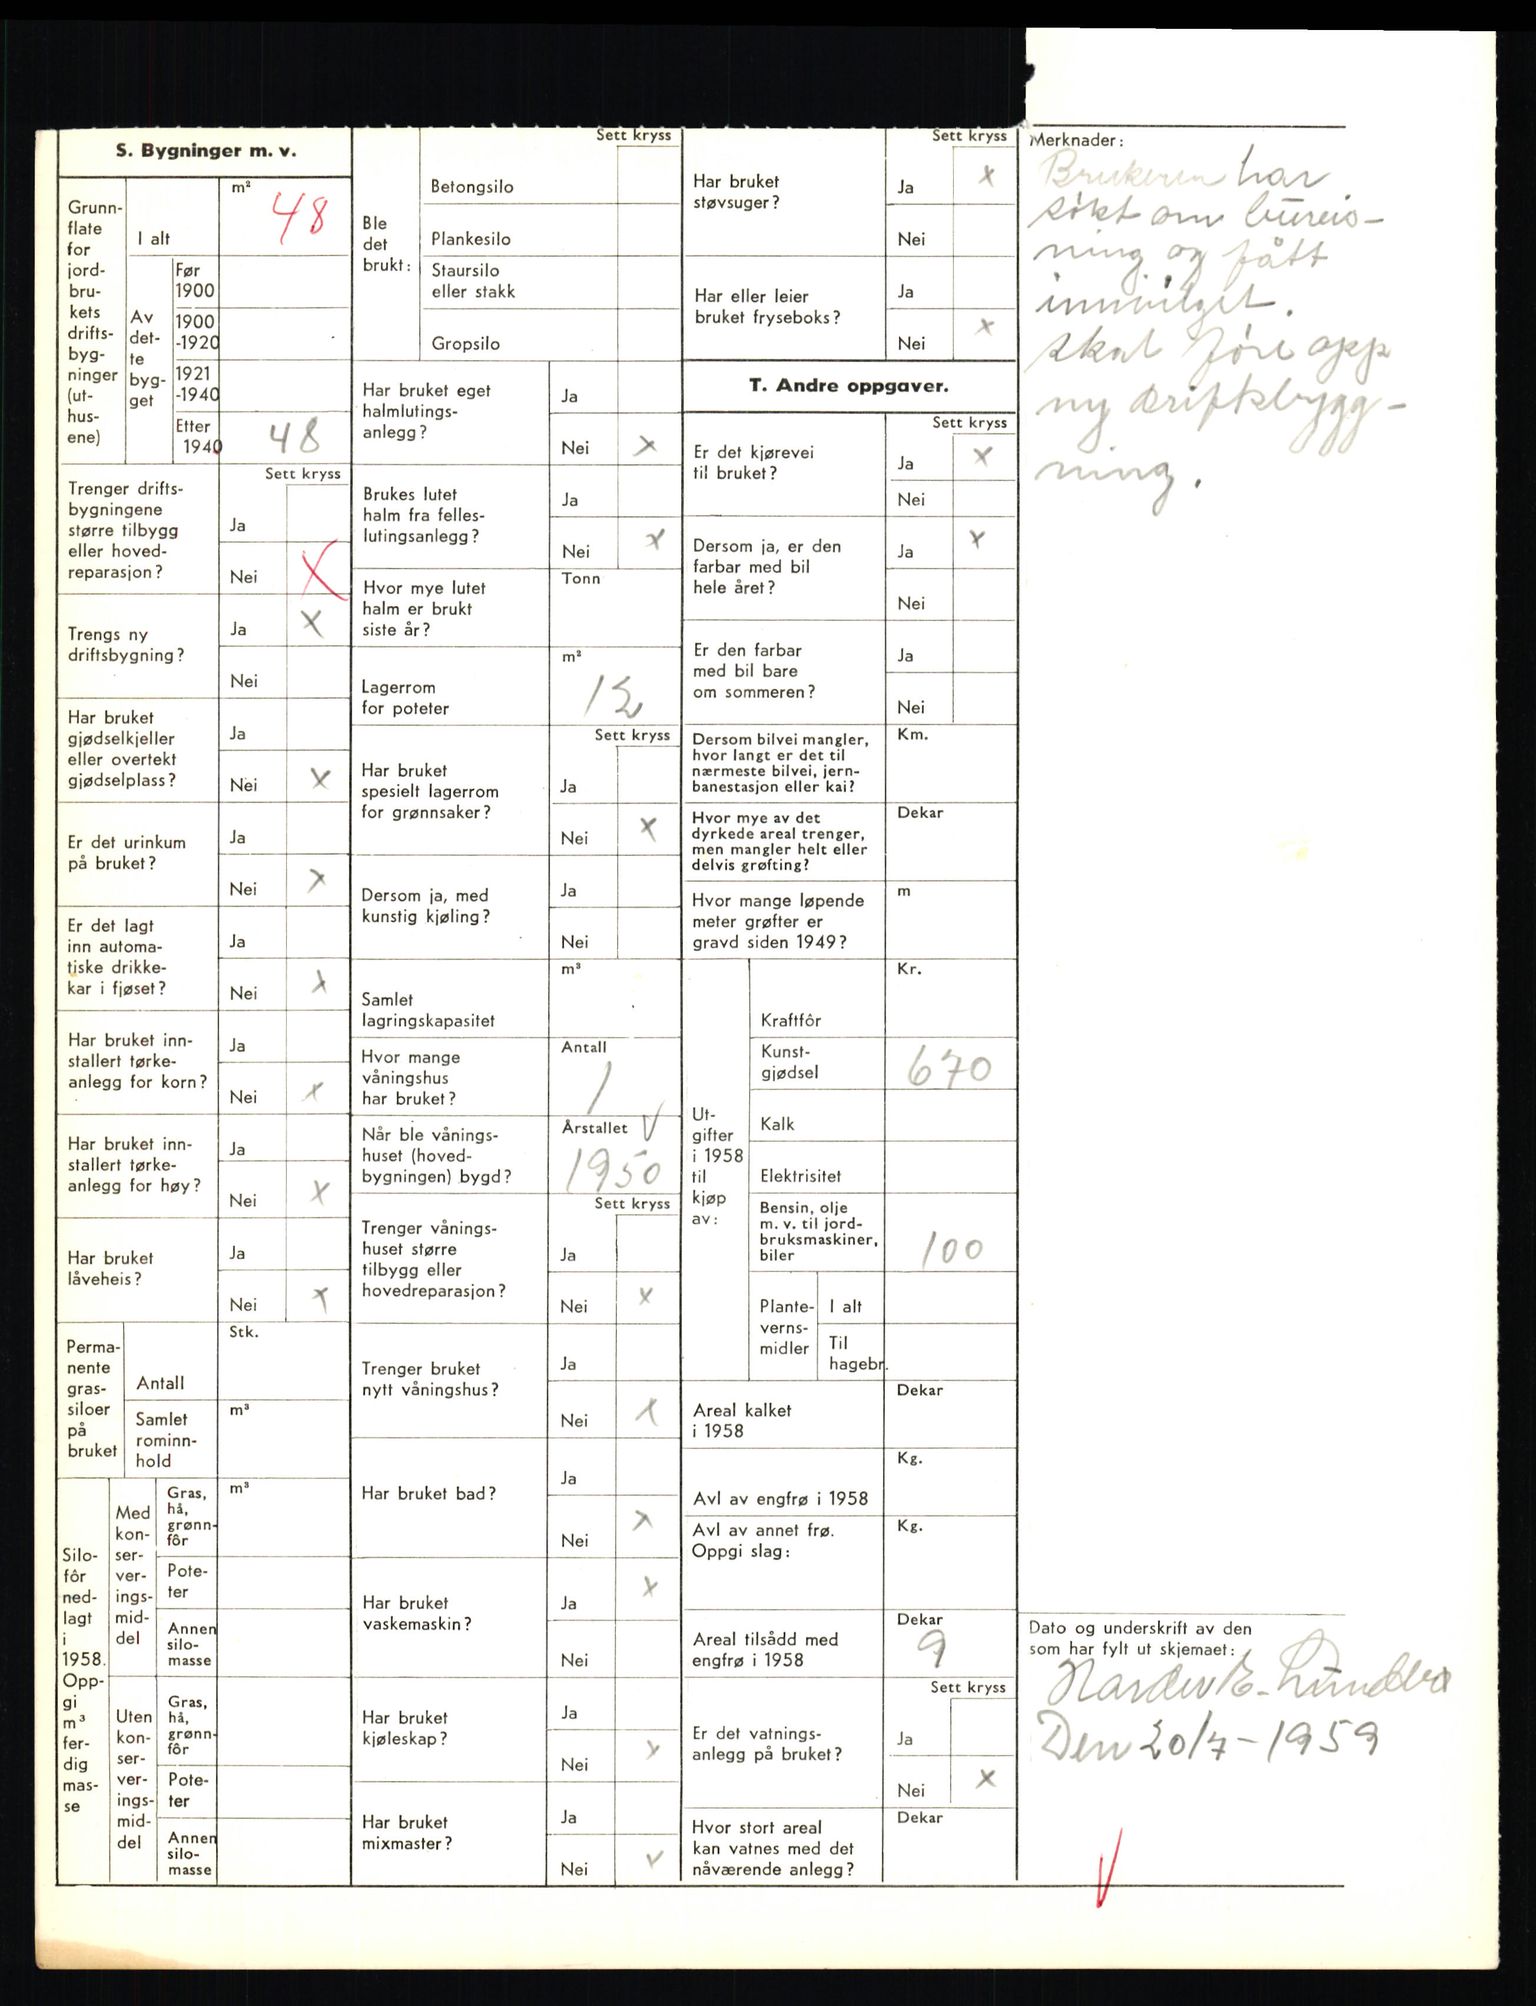 S. Bygninger m. v.
Grunn-
flate
for
jord-
bru-
kets
drifts-
byg-
ninger
(ut-
hus-
ene)
I alt
m²
48
Av
det-
te
byg-
get
Før
1900
1900
-1920
1921
-1940
Etter
1940
48
Sett kryss
Trenger drifts-
bygningene
større tilbygg
eller hoved-
reparasjon?
Ja
Nei X
Trengs ny
driftsbygning?
Ja X
Nei
Har bruket
gjødselkjeller
eller overtekt
gjødselplass?
Ja
Nei X
Er det urinkum
på bruket?
Ja
Nei X
Er det lagt
inn automa-
tiske drikke-
kar i fjøset?
Ja
Nei X
Har bruket inn-
stallert tørke-
anlegg for korn?
Ja
Nei X
Har bruket inn-
stallert tørke-
anlegg for høy?
Ja
Nei X
Har bruket
låveheis?
Ja
Nei X
Perma-
nente
gras-
siloer
på
bruket
Antall
Stk.
Samlet
rominn-
hold
m³
Silo-
fôr
ned-
lagt
i
1958.
Opp-
gi
m³
fer-
dig
mas-
se
Med
kon-
ser-
ver-
ings-
mid-
del
Gras,
hå,
grønn-
fôr
m³
Pote-
ter
Annen
silo-
masse
Uten
kon-
ser-
ver-
ings-
mid-
del
Gras,
hå,
grønn-
fôr
Pote-
ter
Annen
silo-
masse
Sett kryss
Ble
det
brukt:
Betongsilo
Plankesilo
Staursilo
eller stakk
Gropsilo
Har bruket eget
halmlutings-
anlegg?
Ja
Nei X
Brukes lutet
halm fra felles-
lutingsanlegg?
Ja
Nei X
Hvor mye lutet
halm er brukt
siste år?
Tonn
Lagerrom
for poteter
m²
12
Sett kryss
Har bruket
spesielt lagerrom
for grønnsaker?
Ja
Nei X
Dersom ja, med
kunstig kjøling?
Ja
Nei
Samlet
lagringskapasitet
m³
Hvor mange
våningshus
har bruket?
Antall
1
Når ble vånings-
huset (hoved-
bygningen) bygd?
Årstallet V
1950
Sett kryss
Trenger vånings-
huset større
tilbygg eller
hovedreparasjon?
Ja
Nei X
Trenger bruket
nytt våningshus?
Ja
Nei X
Har bruket bad?
Ja
Nei X
Har bruket
vaskemaskin?
Ja X
Nei
Har bruket
kjøleskap?
Ja
Nei X
Har bruket
mixmaster?
Ja
Nei V
Sett kryss
Har bruket
støvsuger?
Ja X
Nei
Har eller leier
bruket fryseboks?
Ja
Nei X
T. Andre oppgaver.
Sett kryss
Er det kjørevei
til bruket?
Ja X
Nei
Dersom ja, er den
farbar med bil
hele året?
Ja X
Nei
Er den farbar
med bil bare
om sommeren?
Ja
Nei
Dersom bilvei mangler,
hvor langt er det til
nærmeste bilvei, jern-
banestasjon eller kai?
Km.
Hvor mye av det
dyrkede areal trenger,
men mangler helt eller
delvis grøfting?
Dekar
Hvor mange løpende
meter grøfter er
gravd siden 1949?
m
Ut-
gifter
i 1958
til
kjøp
av:
Kraftfôr
Kr.
Kunst-
gjødsel
670
Kalk
Elektrisitet
Bensin, olje
m. v. til jord-
bruksmaskiner,
biler
100
Plante-
verns-
midler
I alt
Til
hagebr.
Areal kalket
i 1958
Dekar
Avl av engfrø i 1958
Kg.
Avl av annet frø.
Oppgi slag:
Kg.
Areal tilsådd med
engfrø i 1958
Dekar
9
Sett kryss
Er det vatnings-
anlegg på bruket?
Ja
Nei X
Hvor stort areal
kan vatnes med det
nåværende anlegg?
Dekar
Merknader:
Brukeren har
søkt om bureis-
ning og fått
innvilget.
skal føre opp
ny driftsbygg-
ning.
Dato og underskrift av den
som har fylt ut skjemaet:
Den 20/7-1959
V